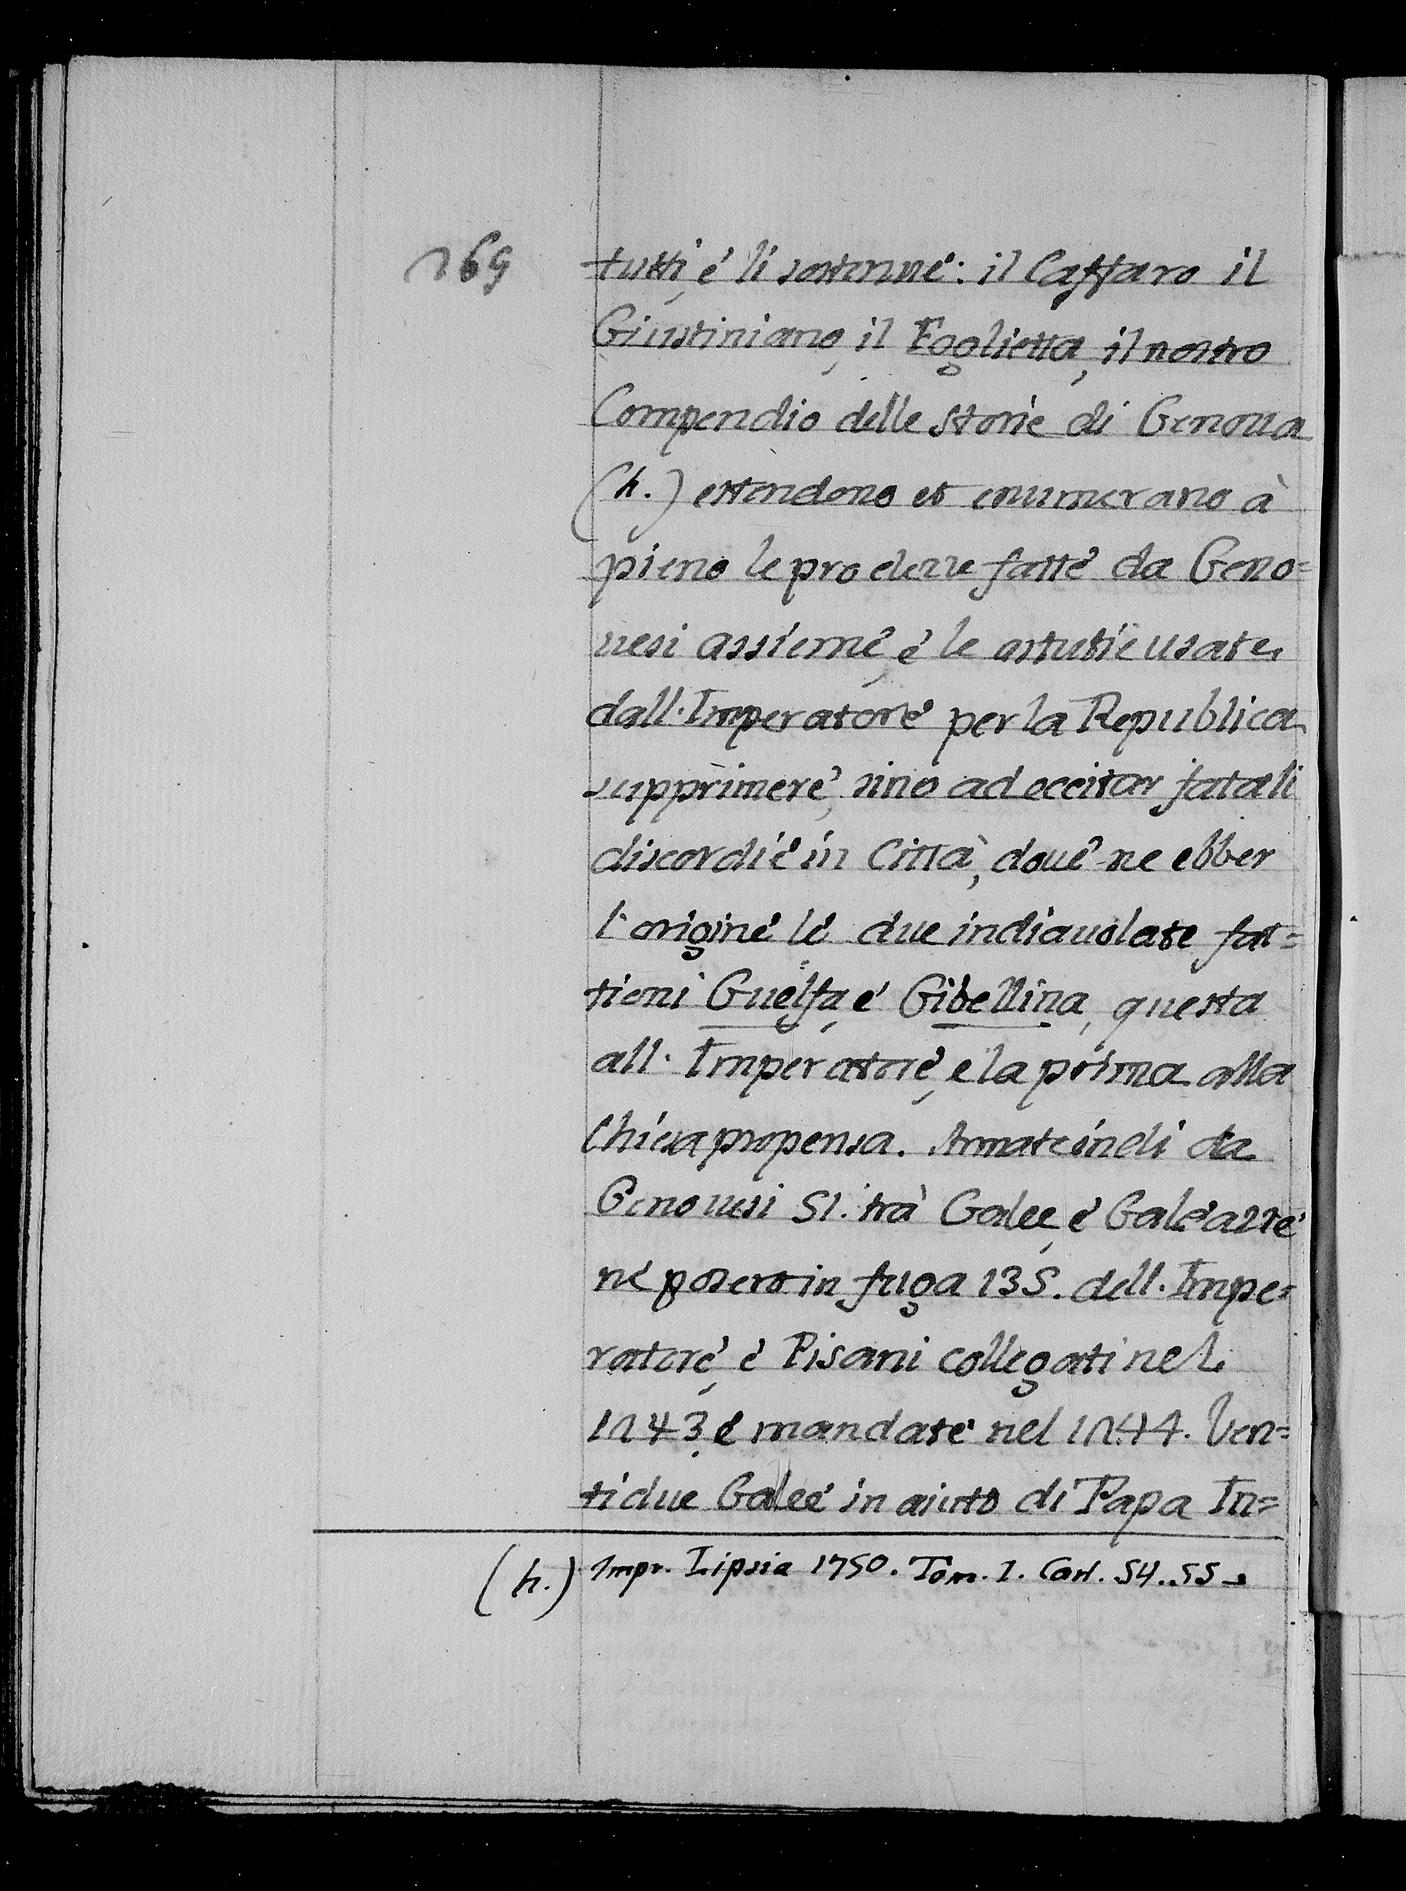 269
tutti, é li sostenné: il Caffaro il
Giustiniano, il Foglietta, il nostro
Compendio delle storie di Genoua
(h.) estendono et enumerano à
pieno le prodezze fatté da Geno=
uesi assiemé, é le astutié usate,
dall'Imperatoré per la Republica
supprimeré, sino ad eccitar fatali
discordié in Città, doué ne ebber
l'originé lé due indiauolate fat=
tioni Guelfa, é Gibellina, questa
all'Imperatoré, e la prima alla
Chiesa propensa. Armate indi da
Genouesi 51. trà Galee, é Galéazzé
né posero in fuga 135. dell'Impe=
ratoré, é Pisani collegati nel
1243, é mandaté nel 1244. Ven=
tidue Galeé in aiuto di Papa In=
(h.) Impr. Lipsia 1750. Tom. 1. Cart. 54.55